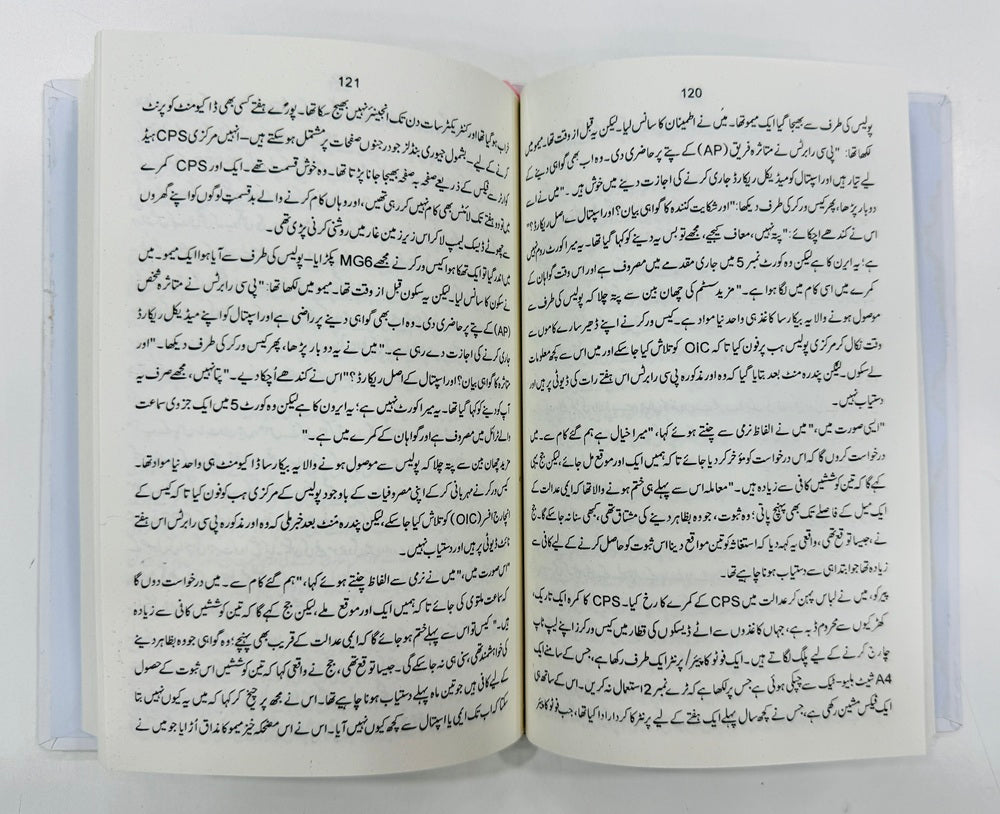 120
پولیس کی طرف سے بھیجا گیا ایک میمو تھا۔ میں نے اطمینان کا سانس لیا۔ لیکن یہ قبل از وقت تھا۔ میمو میں
لکھا تھا: "پی سی رابرٹس نے متاثرہ فریق (AP) کے پتے پر حاضری دی۔ وہ اب بھی گواہی دینے کے
لیے تیار ہیں اور اسپتال کو میڈیکل ریکارڈ جاری کرنے کی اجازت دینے میں خوش ہیں۔" میں نے اسے
دوبار پڑھا، پھر کیس ورکر کی طرف دیکھا: "اور شکایت کنندہ کا گواہی بیان؟ اور اسپتال کے اصل ریکارڈ؟"
اس نے کندھے اچکائے: "پتہ نہیں، معاف کیجیے، مجھے تو بس یہ دینے کو کہا گیا تھا۔ یہ میرا کورٹ روم نہیں
ہے؛ یہ ایرن کا ہے لیکن وہ کورٹ نمبر 5 میں جاری مقدمے میں مصروف ہے اور اس وقت گواہان کے
کمرے میں اسی کام میں لگا ہوا ہے۔" مزید سسٹم کی چھان بین سے پتہ چلا کہ پولیس کی طرف سے
موصول ہونے والا یہ بیکار سا کاغذ ہی واحد نیا مواد ہے۔ کیس ورکر نے اپنے ڈھیر سارے کاموں سے
وقت نکال کر مرکزی پولیس ہب پر فون کیا تا کہ OIC کو تلاش کیا جا سکے اور میں اس سے کچھ معلومات
لے سکوں۔ لیکن پندرہ منٹ بعد بتایا گیا کہ وہ اور مذکورہ پی سی رابرٹس اس ہفتے رات کی ڈیوٹی پر ہیں اور
دستیاب نہیں۔
"ایسی صورت میں،" میں نے الفاظ نرمی سے چنتے ہوئے کہا، "میرا خیال ہے ہم گئے کام سے۔ میں
درخواست کروں گا کہ اس درخواست کو مؤخر کر دیا جائے تا کہ ہمیں ایک اور موقع مل جائے، لیکن جج یہی
کہے گا کہ تین کوششیں کافی سے زیادہ ہیں۔" معاملہ اس سے پہلے ہی ختم ہونے والا تھا کہ ایمی عدالت کے
ایک میل کے فاصلے تک بھی پہنچ پاتی؛ وہ ثبوت، جو وہ بظاہر دینے کی مشتاق تھی، کبھی سنا نہ جائے گا۔ جج
نے، جیسا توقع تھی، واقعی یہ کہہ دیا کہ استغاثہ کو تین مواقع دینا اس ثبوت کو حاصل کرنے کے لیے کافی سے
زیادہ تھا جو ابتدا ہی سے دستیاب ہونا چاہیے تھا۔
پیر کو، میں نے لباس پہن کر عدالت میں CPS کے کمرے کا رخ کیا۔ CPS کا کمرہ ایک تاریک،
کھڑکیوں سے محروم ڈبہ ہے، جہاں کاغذوں سے اٹے ڈیسکوں کی قطار میں کیس ورکرز اپنے لیپ ٹاپ
چارج کرنے کے لیے پلگ لگاتے ہیں۔ ایک فوٹو کاپیئر/ پرنٹر ایک طرف رکھا ہے، جس کے سامنے ایک
A4 شیٹ بلیو-ٹیک سے چپکی ہوئی ہے جس پر لکھا ہے کہ ٹرے نمبر 2 استعمال نہ کریں۔ اس کے ساتھ ہی
ایک فیکس مشین رکھی ہے، جس نے کچھ سال پہلے ایک ہفتے کے لیے پرنٹر کا کردار ادا کیا تھا، جب فوٹو کاپیئر
121
خراب ہو گیا تھا اور کنٹریکٹر سات دن تک انجینئر نہیں بھیج سکا تھا۔ پورے ہفتے کسی بھی ڈاکیومنٹ کو پرنٹ
کرنے کے لیے۔ بشمول جیوری بنڈلز جو درجنوں صفحات پر مشتمل ہو سکتے ہیں۔ انہیں مرکزی CPS ہیڈ
کوارٹر سے فیکس کے ذریعے صفحہ بہ صفحہ بھیجا جانا پڑتا تھا۔ وہ خوش قسمت تھے۔ ایک اور CPS کمرے
میں تو دو ہفتے تک لائٹس بھی کام نہیں کر رہی تھیں، اور وہاں کام کرنے والے بدقسمت لوگوں کو اپنے گھروں
سے چھوٹے ڈیسک لیمپ لا کر اس زیر زمین غار میں روشنی کرنی پڑی تھی۔
میں اندر گیا تو ایک تھکا ہوا کیس ورکر نے مجھے MG6 پکڑایا۔ پولیس کی طرف سے آیا ہوا ایک میمو۔ میں
نے سکون کا سانس لیا۔ لیکن یہ سکون قبل از وقت تھا۔ میمو میں لکھا تھا: "پی سی رابرٹس نے متاثرہ شخص
(AP) کے پتے پر حاضری دی۔ وہ اب بھی گواہی دینے پر راضی ہے اور اسپتال کو اپنے میڈیکل ریکارڈ
جاری کرنے کی اجازت دے رہی ہے۔" میں نے یہ دوبار پڑھا، پھر کیس ورکر کی طرف دیکھا۔ "اور
متاثرہ کا گواہی بیان؟ اور اسپتال کے اصل ریکارڈ؟" اس نے کندھے اُچکا دیے۔ "پتا نہیں، مجھے صرف یہ
آپ کو دینے کو کہا گیا تھا۔ یہ میرا کورٹ نہیں ہے؛ یہ ایرون کا ہے لیکن وہ کورٹ 5 میں ایک جزوی سماعت
والے ٹرائل میں مصروف ہے اور گواہان کے کمرے میں ہے۔"
مزید چھان بین سے پتہ چلا کہ پولیس سے موصول ہونے والا یہ بیکار سا ڈاکیومنٹ ہی واحد نیا مواد تھا۔
کیس ورکر نے مہربانی کر کے اپنی مصروفیات کے باوجود پولیس کے مرکزی ہب کو فون کیا تا کہ کیس کے
انچارج افسر (OIC) کو تلاش کیا جا سکے، لیکن پندرہ منٹ بعد خبر ملی کہ وہ اور مذکورہ پی سی رابرٹس اس ہفتے
نائٹ ڈیوٹی پر ہیں اور دستیاب نہیں۔
"اس صورت میں،" میں نے نرمی سے الفاظ چنتے ہوئے کہا، "ہم گئے کام سے۔ میں درخواست دوں گا
کہ سماعت ملتوی کی جائے تا کہ ہمیں ایک اور موقع ملے، لیکن جج کہے گا کہ تین کوششیں کافی سے زیادہ
ہیں۔" کیس تو اس سے پہلے ختم ہو جائے گا کہ ایمی عدالت کے قریب بھی پہنچے؛ وہ گواہی جو وہ بظاہر دینے
کی خواہشمند تھی، سنی ہی نہ جا سکے گی۔ جیسا توقع تھی، جج نے واقعی کہا کہ تین کوششیں اس ثبوت کے حصول
کے لیے کافی ہیں جو تین ماہ پہلے دستیاب ہونا چاہیے تھا۔ اس نے مجھ پر چیخ کر کہا کہ میں یہ کیوں نہیں بتا
سکتا کہ اب تک ایمی یا اسپتال سے کچھ کیوں نہیں آیا۔ اس نے اس مضحکہ خیز میمو کا مذاق اُڑایا جو میں نے